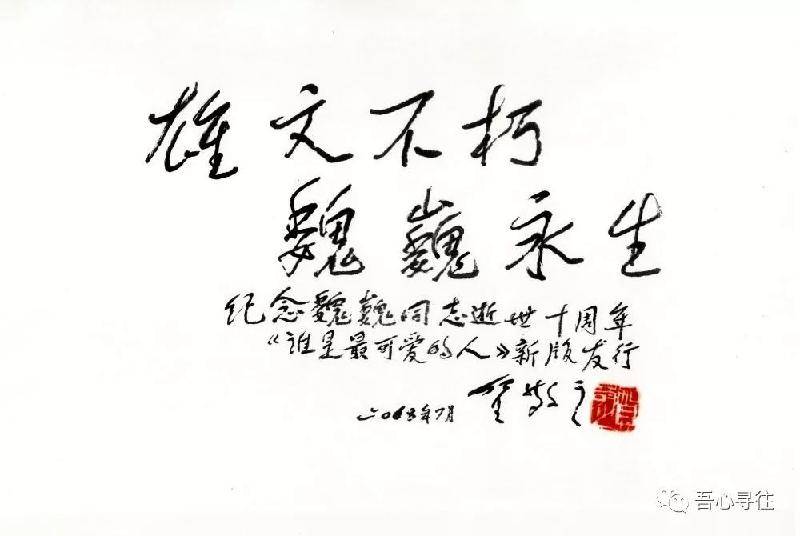 雄文不朽
魏巍永生
纪念魏巍同志逝世十周年
《谁是最可爱的人》新版发行
贺敬之
吾心寻往